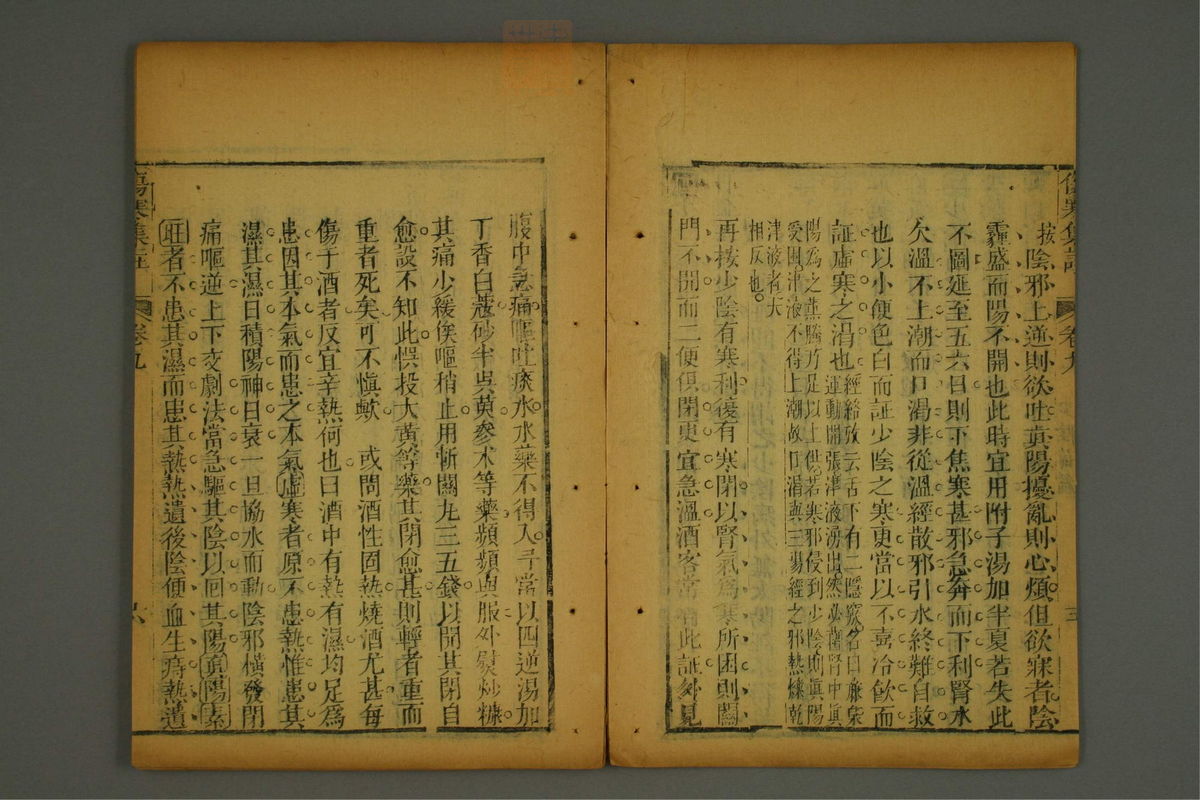 傷寒集註 卷九 三
按陰邪上逆則欲吐眞陽擾亂則心煩但欲寐者陰
霾盛而陽不開也此時宜用附子湯加半夏若失此
不圖延至五六日則下焦寒甚邪急奔而下利腎水
欠溫不上潮而口渴非從溫經散邪引水終難自救
也以小便色白而証少陰之寒更當以不喜冷飲而
証虛寒之渴也經絡攷云舌下有二隱竅名曰廉泉
運動開張津液湧出然必藉腎中眞
陽為之熏騰乃足以上供若寒邪侵到少陰則眞陽
受困津液不得上潮故口渴與三陽經之邪熱爍乾
津液者大
相反也
再按少陰有寒利復有寒閉以腎氣爲寒所困則關
門不開而二便俱閉更宜急溫酒客常有此証外見
腹中急痛嘔吐痰水水藥不得入予常以四逆湯加
丁香白蔻砂半吳萸參朮等藥頻頻與服外熨炒糠
其痛少緩俟嘔稍止用斬關丸三五錢以開其閉自
愈設不知此悞投大黃等藥其閉愈甚則輕者重而
重者死矣可不愼歟 或問酒性固熱燒酒尤甚每
傷于酒者反宜辛熱何也曰酒中有熱有濕均足爲
患因其本氣而患之本氣虛寒者原不患熱惟患其
濕其濕日積陽神日衰一旦協水而動陰邪橫發閉
痛嘔逆上下交劇法當急驅其陰以回其陽眞陽素
旺者不患其濕而患其熱熱遺後陰便血生痔熱遺
傷寒集註 卷九